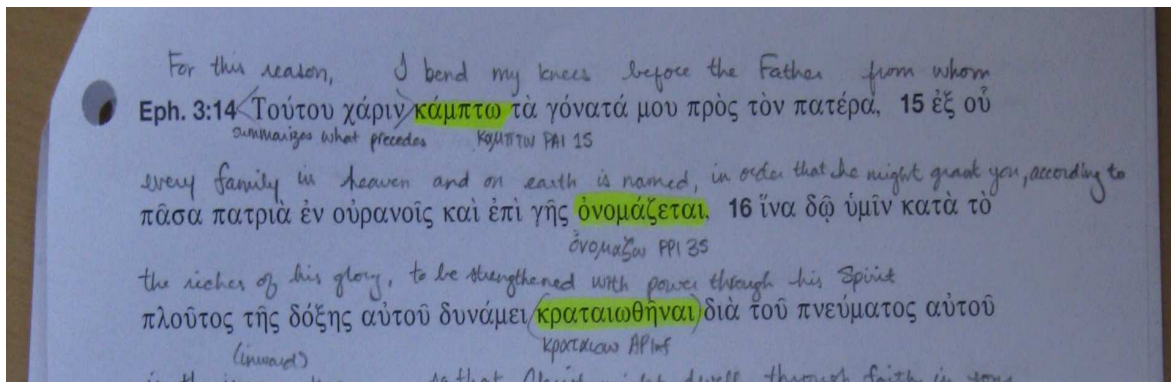 For this reason, I bend my knees before the Father from whom
Eph. 3:14 Τούτου χάριν κάμπτω τὰ γόνατά μου πρὸς τὸν πατέρα, 15 ἐξ οὗ
summarizes what precedes καμπτω PAI 1S
every family in heaven and on earth is named, in order that he might grant you, according to
πᾶσα πατριὰ ἐν οὐρανοῖς καὶ ἐπὶ γῆς ὀνομάζεται, 16 ἵνα δῷ ὑμῖν κατὰ τὸ
ὀνομαζω PPI 3S
the riches of his glory, to be strengthened with power through his Spirit
πλοῦτος τῆς δόξης αὐτοῦ δυνάμει κραταιωθῆναι διὰ τοῦ πνεύματος αὐτοῦ
(inward) κραταιοω APInf
so that Christ might dwell through faith in your